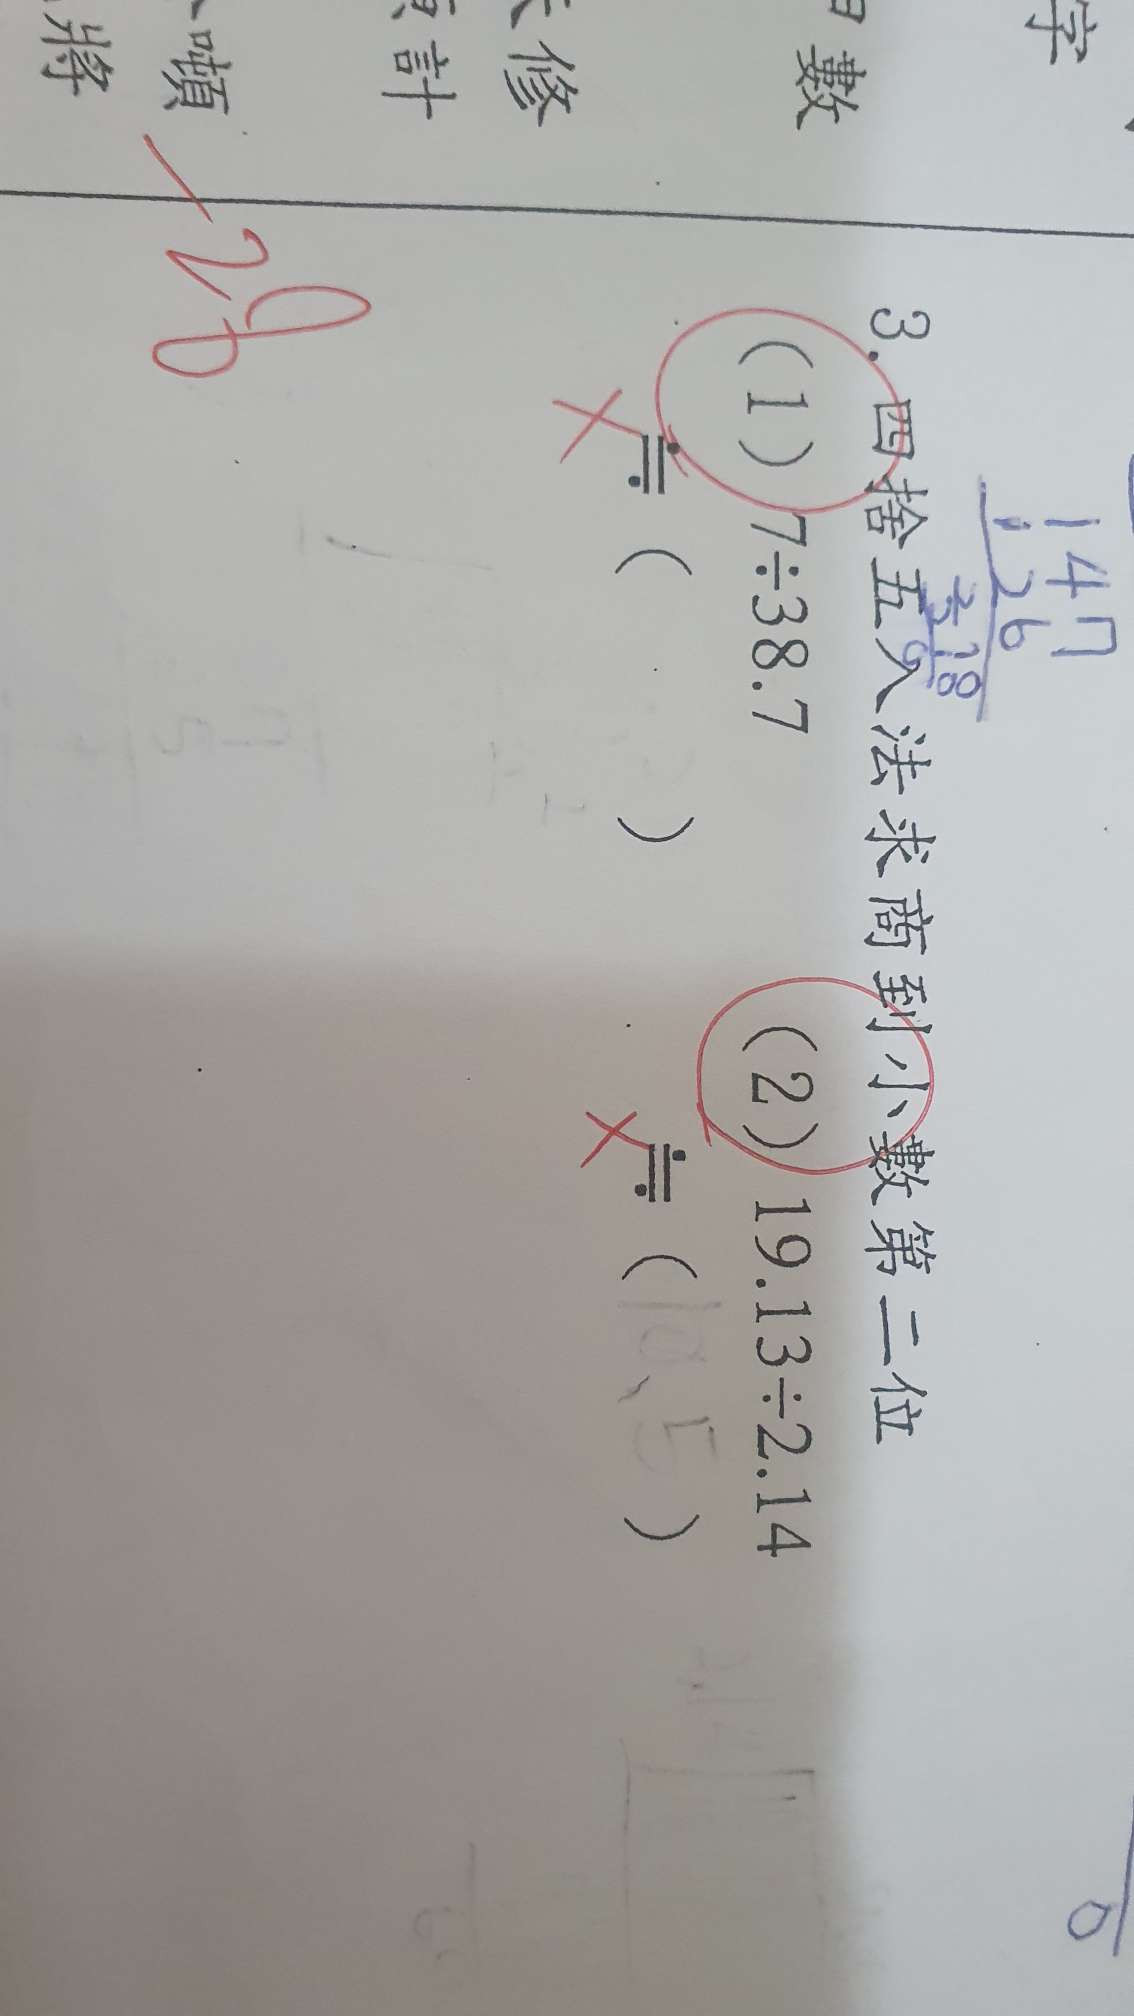 字
數
修
計
噸
將
147
126
218
3. 四捨五入法求商到小數第二位
(1) 7÷38.7
(2) 19.13÷2.14
≒ ( )
≒ (10.5)
-28
0